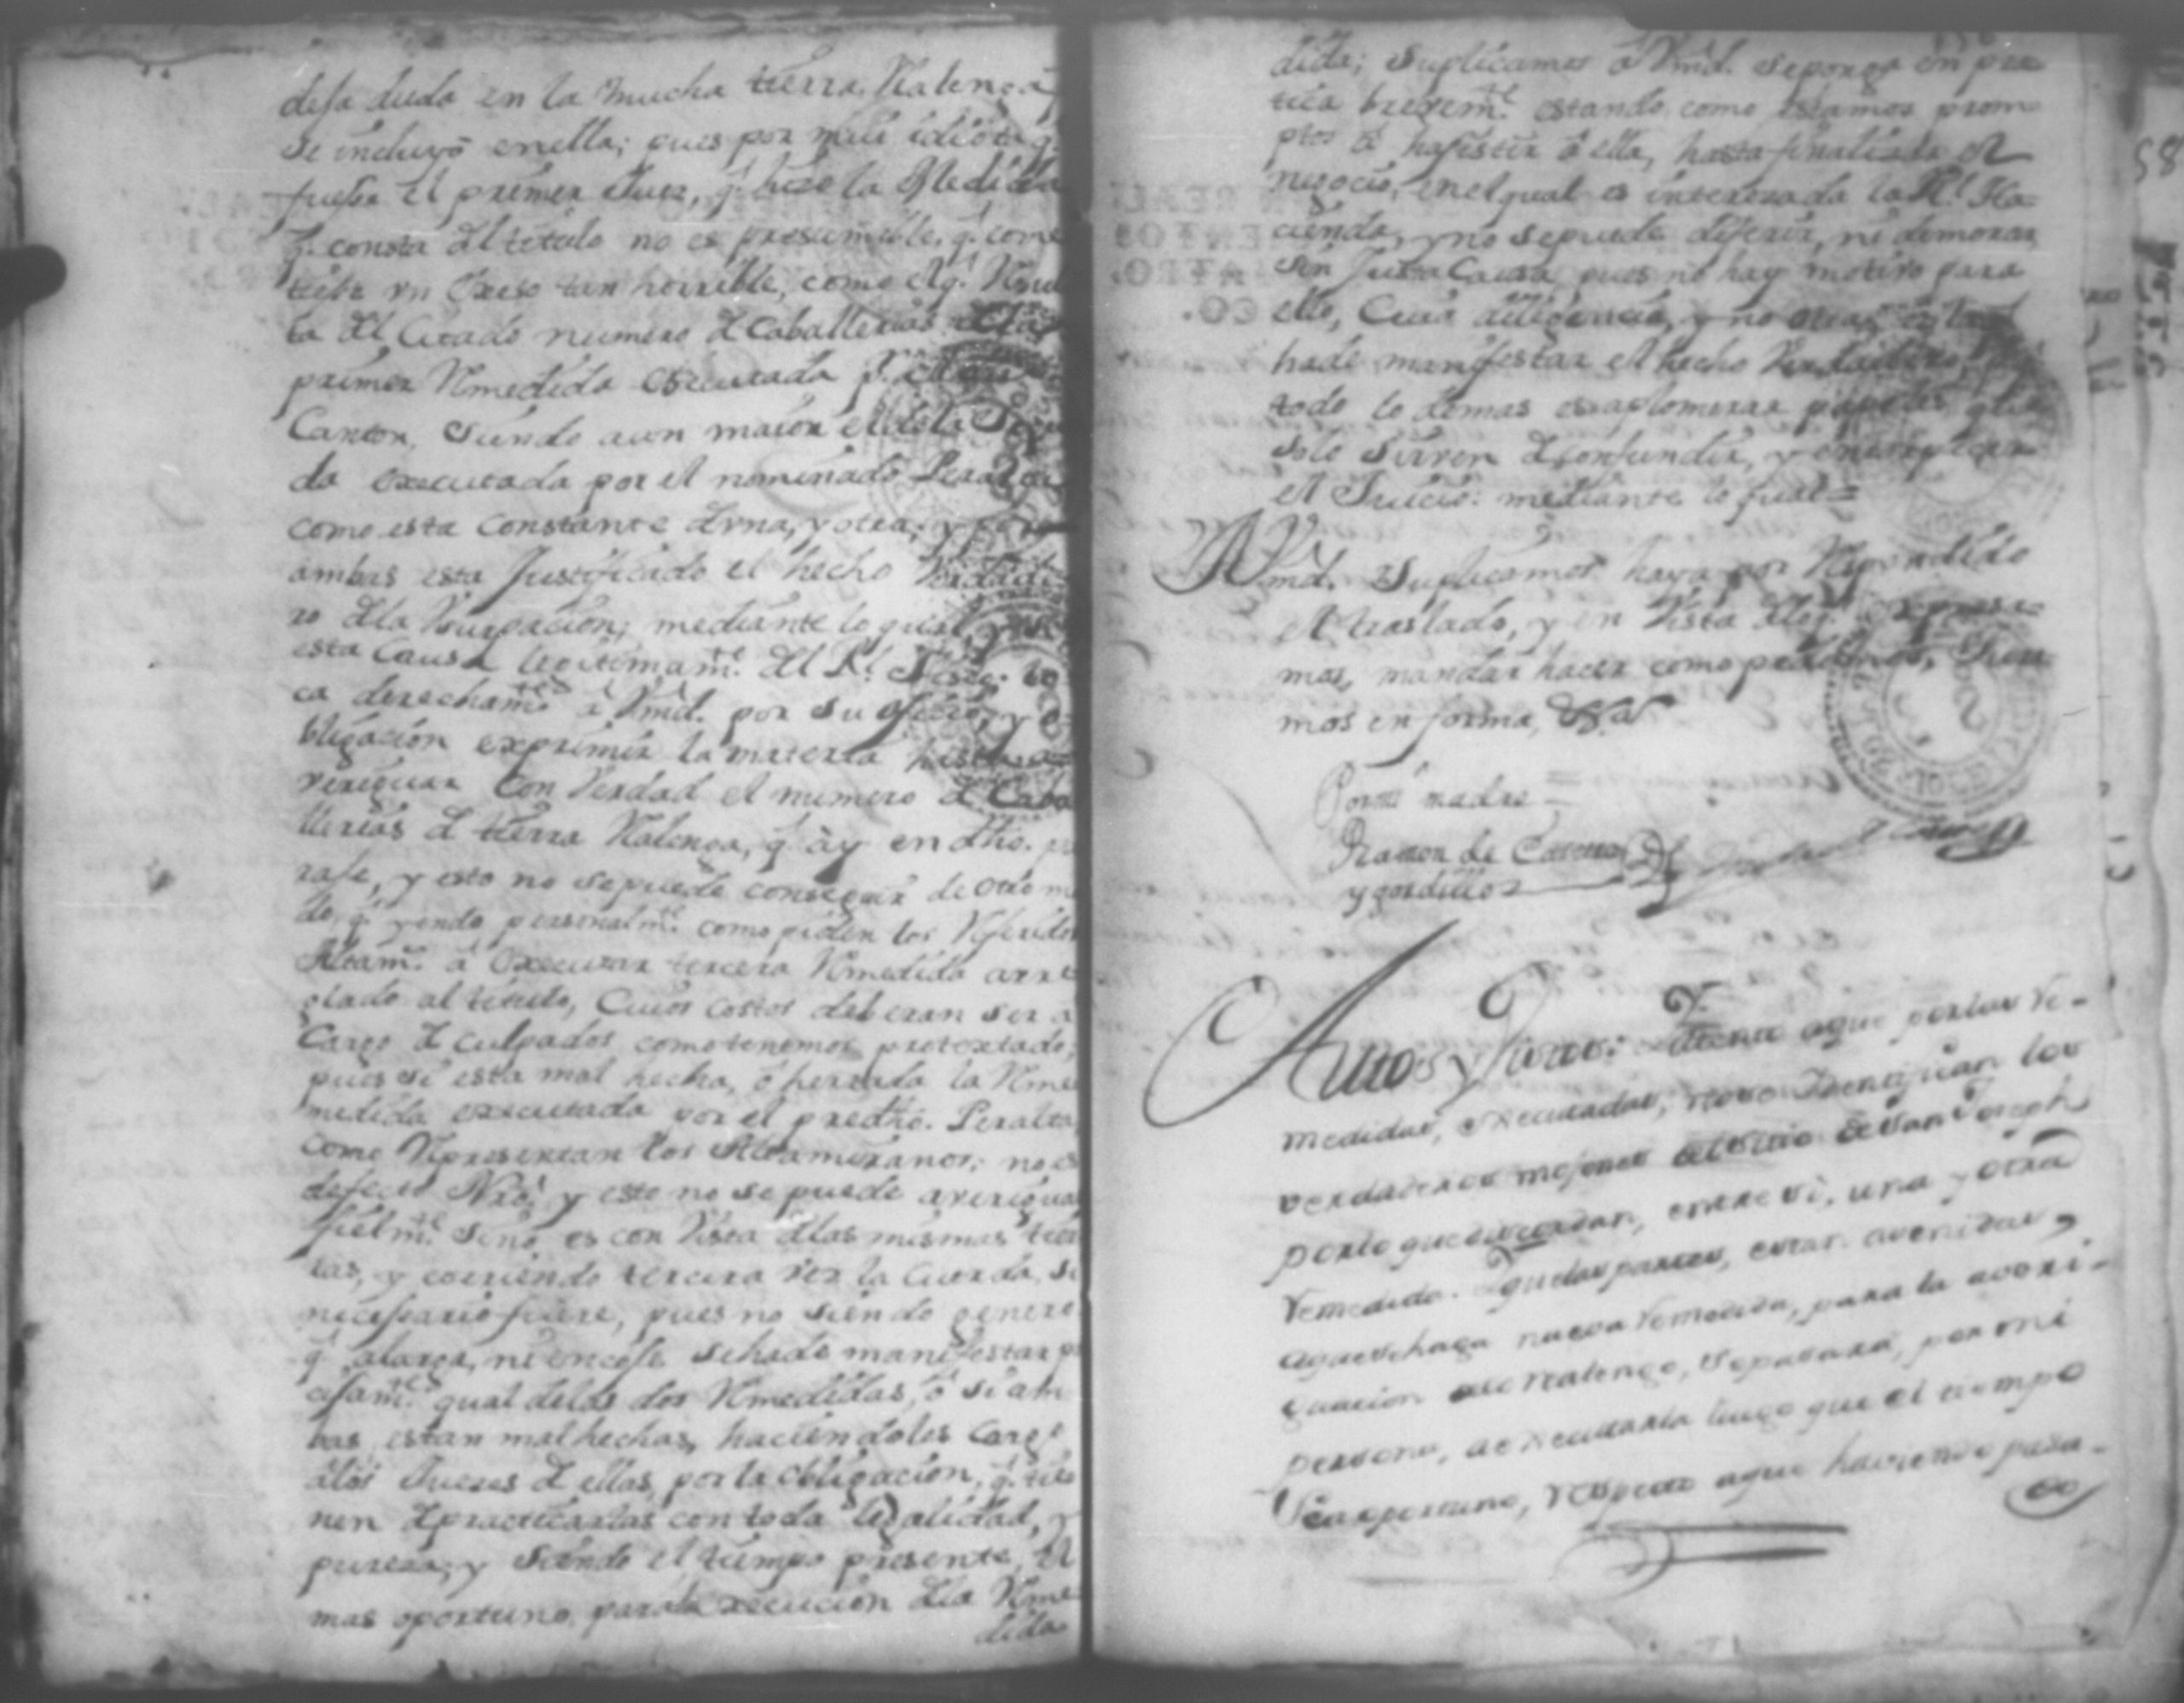 dexa duda en la mucha tierra Realenga
se incluyó en ella; pues por mui idiota q.
fuese el primer Juez, q.e hizo la Medida
q. consta del titulo no es presumible, q. come
tiese un Exceso tan horrible, como el q. Resul
ta del Citado numero de Caballerias
primer Remedida executada p.
Cantor, siendo aun maior el de la Segun
da executada por el nominado Peralta
como esta constante de una, y otra; y por
ambas esta Justificado el hecho Verdade
ro de la Usurpacion; mediante lo qual, y ser
esta Causa legitimam.te del R.l Fisco: to
ca derecham.te a Vmd. por su oficio, y o=
bligacion exprimir la materia hasta a=
veriguar con Verdad el numero de Caba
llerias de tierra Realenga, q. ay en dho. pa
raje, y esto no se puede conseguir de otro mo
do, q. yendo personalm.te como piden los Referidos
Altam.s a Executar tercera Remedida arre
glado al titulo, Cuios costos deberan ser a
Cargo de culpados como tenemos protextado;
pues si esta mal hecha, o herrada la Reme
medida executada por el predho. Peralta,
como Representan los Altamiranos; no es
defecto Nro: y esto no se puede averiguar
fielm.te sino es con Vista de las mismas tier
ras, y corriendo tercera vez la Cuerda, si
necessario fuere, pues no siendo genero
q. alarga, ni encoje se hade manifestar pre
cisam.te qual de las dos Remedidas, o si am
bas estan mal hechas, haciendoles Cargo
a los Jueces de ellas por la obligacion, q. tie
nen de practicarlas con toda legalidad, y
pureza, y siendo el tiempo presente, el
mas oportuno para la execucion de la Reme
dida
dida; Suplicamos a Vmd. se ponga en prac
tica brevem.te estando como estamos promp
ptos a hasistir a ella, hasta finalizado el
negocio, en el qual es interezada la R.l Ha=
cienda, y no se puede diferir, ni demorar
sin Justa Causa, pues no hay motivo para
ello, Cuia diligencia, y no otra es la q.
hade manifestar el hecho Verdadero,
todo lo demas es aglomerar papeles, que
solo sirven de confundir, y
el Juicio: mediante lo qual=
A Vmd. Suplicamos haya por Respondido
el traslado, y en Vista de lo q. expresa=
mos, mandar hacer como pedimos, Jura
mos en forma, &.a
Por mi madre=
Ramon de
y gordillo
Autos y Vistos: Attento aque por las re-
medidas, executadas, no se Averiguan los
verdaderos mojones del sitio de San Joseph
por lo que discordan, entre si, una y otra
remedida. Y que las partes, estan avenidas,
aque se haga nueva remedida, para la averi-
guacion de lo realengo, se pasará, por mi
persona, a executarla luego que el tiempo
sea oportuno, respecto aque haviendo pasa-
do